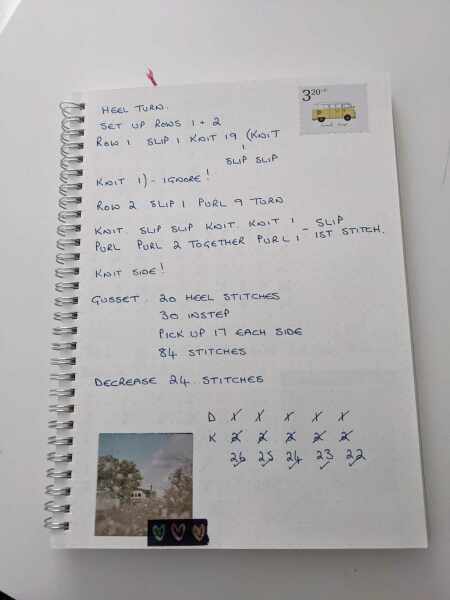 3 20
HEEL TURN.
SET UP ROWS 1 + 2
ROW 1 SLIP 1 KNIT 19 (KNIT
1
SLIP SLIP
KNIT 1) - IGNORE!
ROW 2 SLIP 1 PURL 9 TURN
KNIT. SLIP SLIP KNIT. KNIT 1 - SLIP
PURL PURL 2 TOGETHER PURL 1 1ST STITCH.
KNIT SIDE!
GUSSET. 20 HEEL STITCHES
30 INSTEP
PICK UP 17 EACH SIDE
84 STITCHES
DECREASE 24 STITCHES
D 1 1 1 1 1
K 2 2 2 2 2
26 25 24 23 22